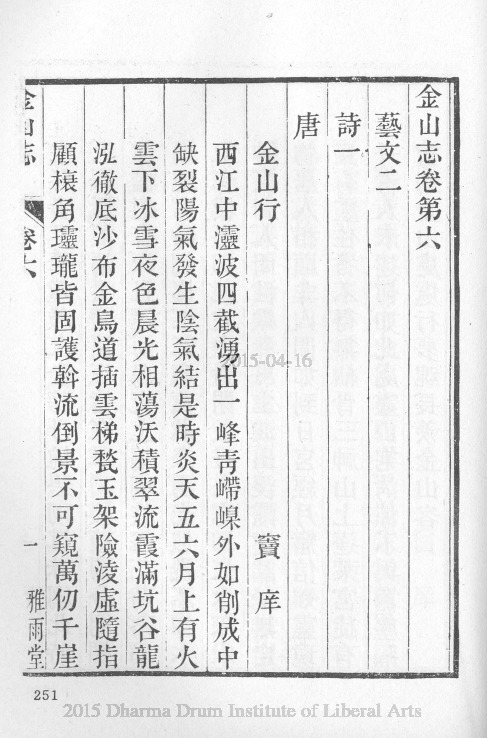 金山志卷第六
藝文二
詩一
唐
金山行 竇庠
西江中灃波四截湧出一峰靑㟴嵲外如削成中
缺裂陽氣發生陰氣結是時炎天五六月上有火
雲下冰雪夜色晨光相蕩沃積翠流霞滿坑谷龍
泓徹底沙布金鳥道插雲梯甃玉架險淩虛隨指
顧榱角瓏皆固護斡流倒景不可窺萬仞千崖
金山志 卷六 一 雅雨堂
2015-04-16
251
2015 Dharma Drum Institute of Liberal Arts